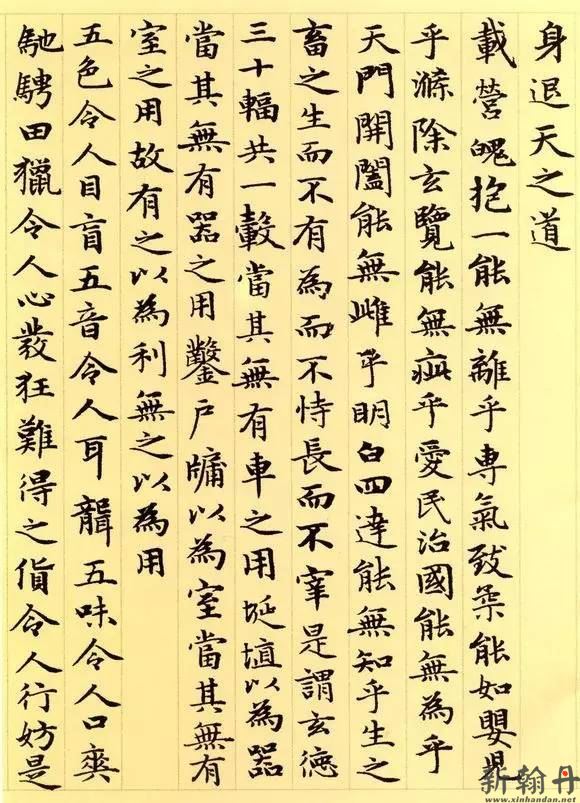 身退天之道
載營魄抱一能無離乎專氣致柔能如嬰兒
乎滌除玄覽能無疵乎愛民治國能無為乎
天門開闔能無雌乎明白四達能無知乎生之
畜之生而不有為而不恃長而不宰是謂玄德
三十輻共一轂當其無有車之用埏埴以為器
當其無有器之用鑿户牖以為室當其無有
室之用故有之以為利無之以為用
五色令人目盲五音令人耳聾五味令人口爽
馳騁田獵令人心發狂難得之貨令人行妨是
新翰丹
www.xinhandan.net